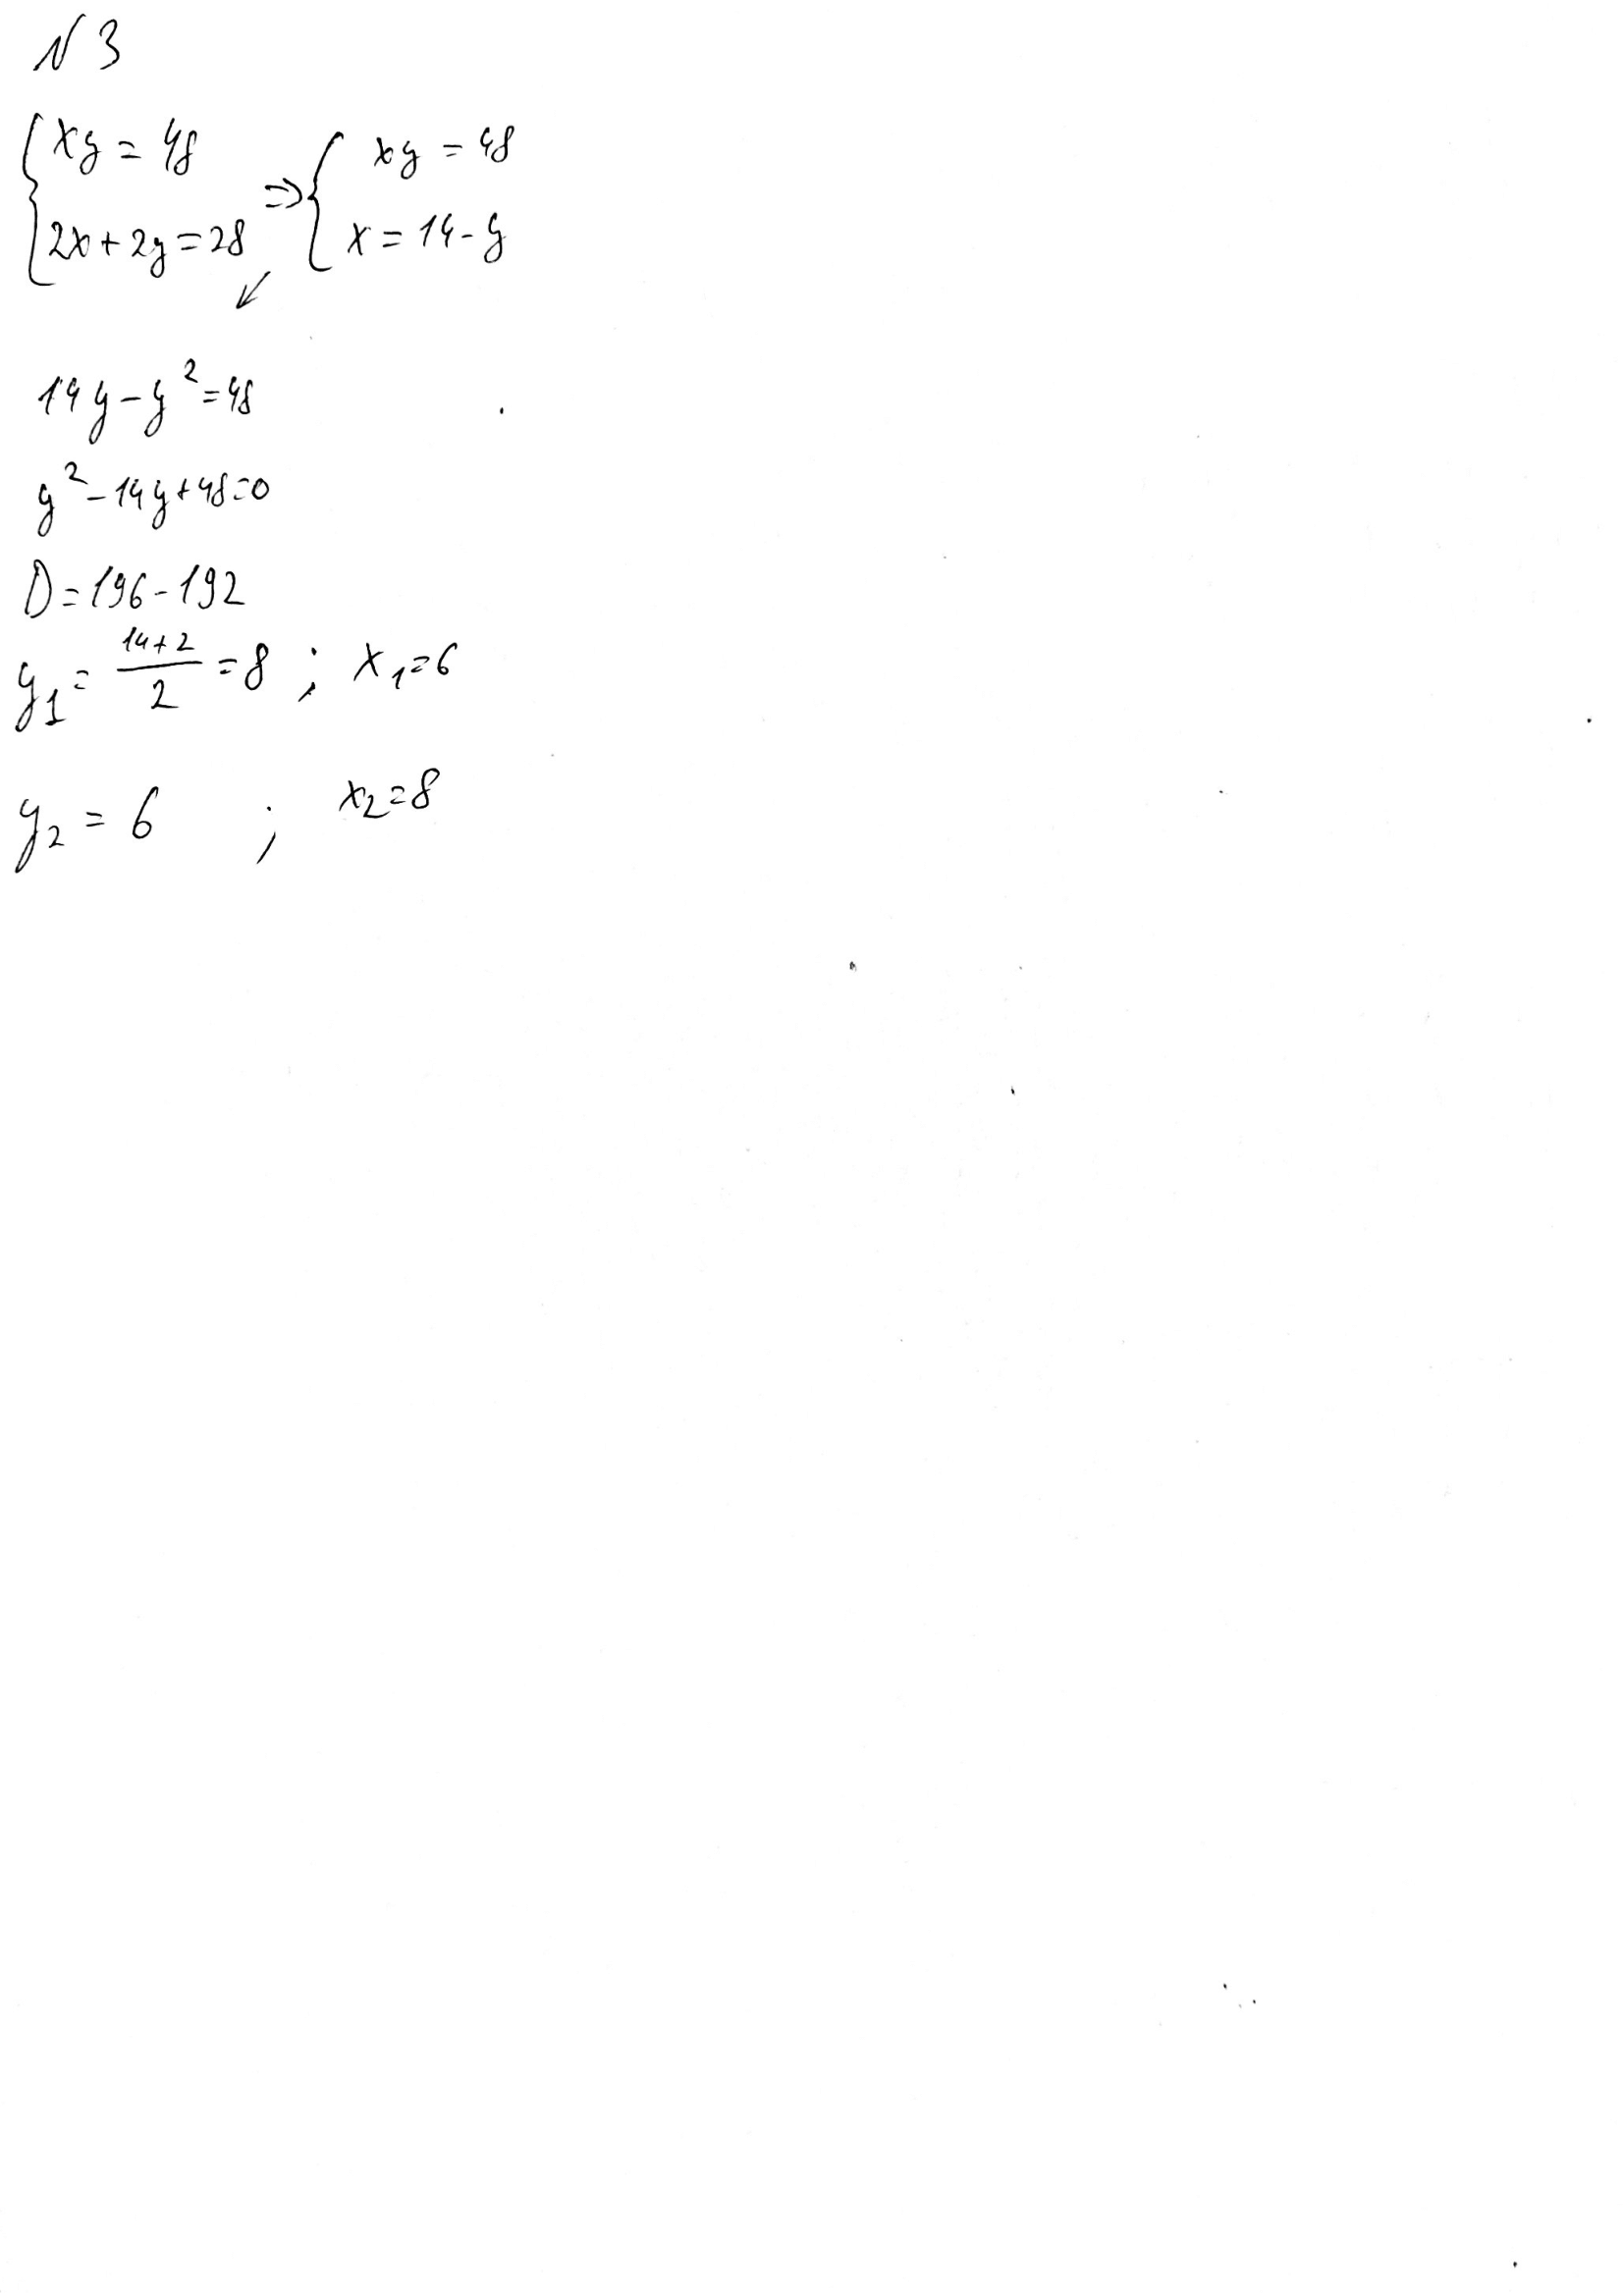 N 3
xy = 48 ⇒ xy = 48
2x + 2y = 28 x = 14 - y
↙
14y - y² = 48
y² - 14y + 48 = 0
D = 196 - 192
y₁ = (14 + 2)/2 = 8 ; x₁ = 6
y₂ = 6 ; x₂ = 8